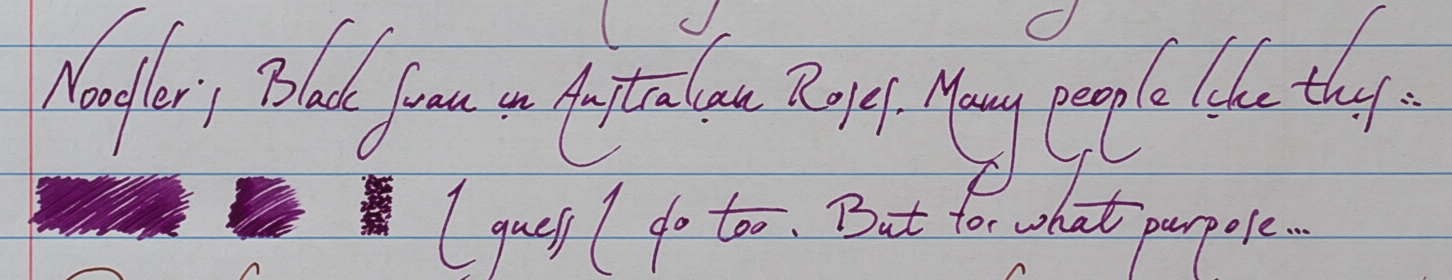 Noodler's Black Swan in Australian Roses. Many people like this :.
I guess I do too. But for what purpose...